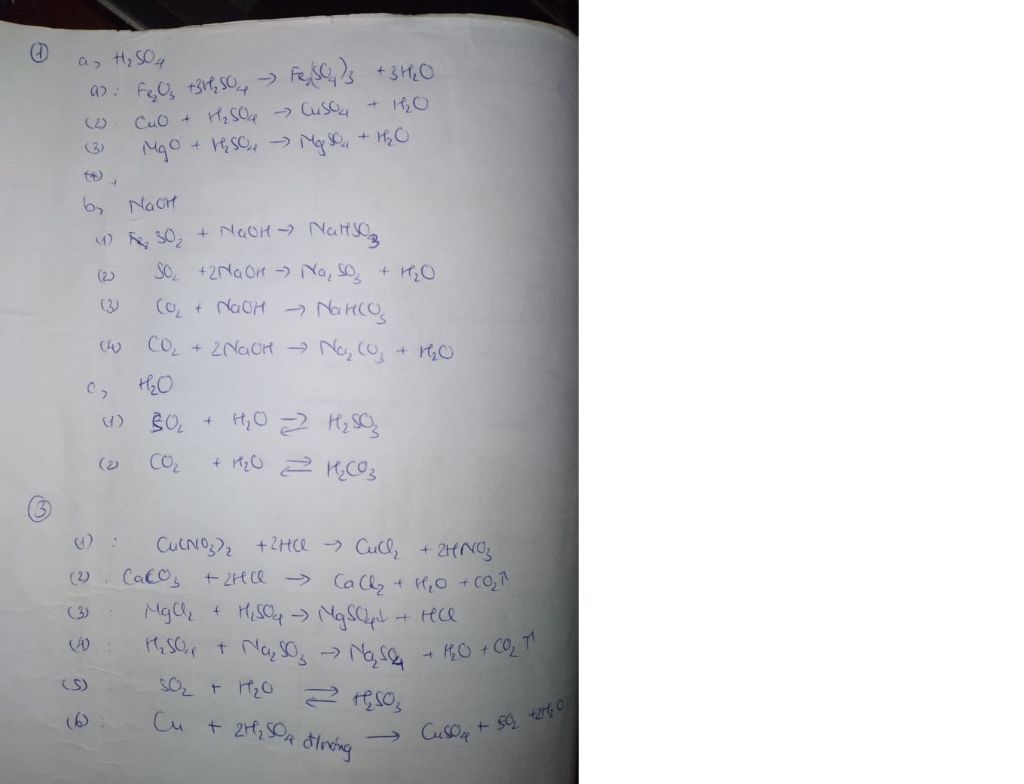 ①
a, H₂SO₄
(1): Fe₂O₃ + 3H₂SO₄ → Fe₂(SO₄)₃ + 3H₂O
(2): CuO + H₂SO₄ → CuSO₄ + H₂O
(3) MgO + H₂SO₄ → MgSO₄ + H₂O
b, NaOH
(1) SO₂ + NaOH → NaHSO₃
(2) SO₂ + 2NaOH → Na₂SO₃ + H₂O
(3) CO₂ + NaOH → NaHCO₃
(4) CO₂ + 2NaOH → Na₂CO₃ + H₂O
c, H₂O
(1) SO₂ + H₂O ⇌ H₂SO₃
(2) CO₂ + H₂O ⇌ H₂CO₃
③
(1): Cu(NO₃)₂ + 2HCl → CuCl₂ + 2HNO₃
(2): CaCO₃ + 2HCl → CaCl₂ + H₂O + CO₂↑
(3) MgCl₂ + H₂SO₄ → MgSO₄↓ + HCl
(4) H₂SO₄ + Na₂SO₃ → Na₂SO₄ + H₂O + CO₂↑
(5) SO₂ + H₂O ⇌ H₂SO₃
(6) Cu + 2H₂SO₄ đ/nóng → CuSO₄ + SO₂ + 2H₂O